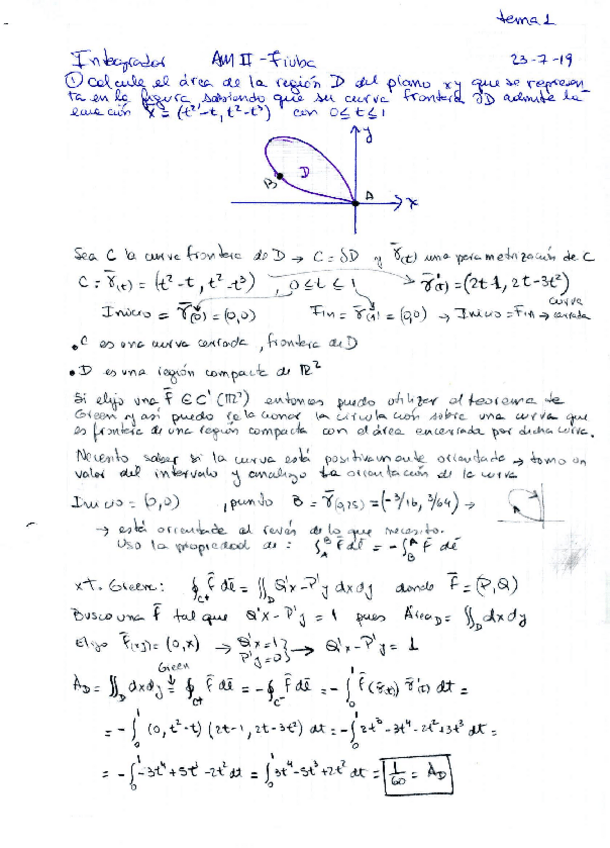 tema 1
Integrador AM II - Fiuba 23-7-19
① Calcule el área de la región D del plano xy que se represen
ta en la figura, sabiendo que su curva frontera ∂D admite la
ecuación x̄ = (t²-t, t²-t³) con 0≤t≤1
y
B D A x
Sea C la curva frontera de D → C = ∂D y γ̄(t) una parametrización de C
C: γ̄(t) = (t²-t, t²-t³), 0≤t≤1 → γ̄'(t) = (2t-1, 2t-3t²)
Inicio = γ̄(0) = (0,0) Fin = γ̄(1) = (0,0) → Inicio = Fin → curva cerrada
• C es una curva cerrada, frontera de D
• D es una región compacta de ℝ²
Si elijo una F̄ ∈ C¹(ℝ²) entonces puedo utilizar el teorema de
Green y así puedo relacionar la circulación sobre una curva que
es frontera de una región compacta con el área encerrada por dicha curva.
Necesito saber si la curva está positivamente orientada → tomo un
valor del intervalo y analizo la orientación de la curva
Inicio = (0,0), punto B = γ̄(0,25) = (-3/16, 3/64) →
→ está orientada al revés de lo que necesito.
Uso la propiedad de: ∫_A^B F̄ dc̄ = -∫_B^A F̄ dc̄
xt. Green: ∮_C+ F̄ dc̄ = ∬_D Q'x - P'y dx dy donde F̄ = (P,Q)
Busco una F̄ tal que Q'x - P'y = 1 pues Área_D = ∬_D dx dy
Elijo F̄(x,y) = (0,x) → Q'x = 1 P'y = 0 } → Q'x - P'y = 1
Green
A_D = ∬_D dx dy = ∮_C+ F̄ dc̄ = -∮_C- F̄ dc̄ = -∫_0^1 F̄(γ̄(t)) γ̄'(t) dt =
= -∫_0^1 (0, t²-t) (2t-1, 2t-3t²) dt = -∫_0^1 2t³-3t⁴-2t²+3t³ dt =
= -∫_0^1 -3t⁴+5t³-2t² dt = ∫_0^1 3t⁴-5t³+2t² dt = 1/60 = A_D